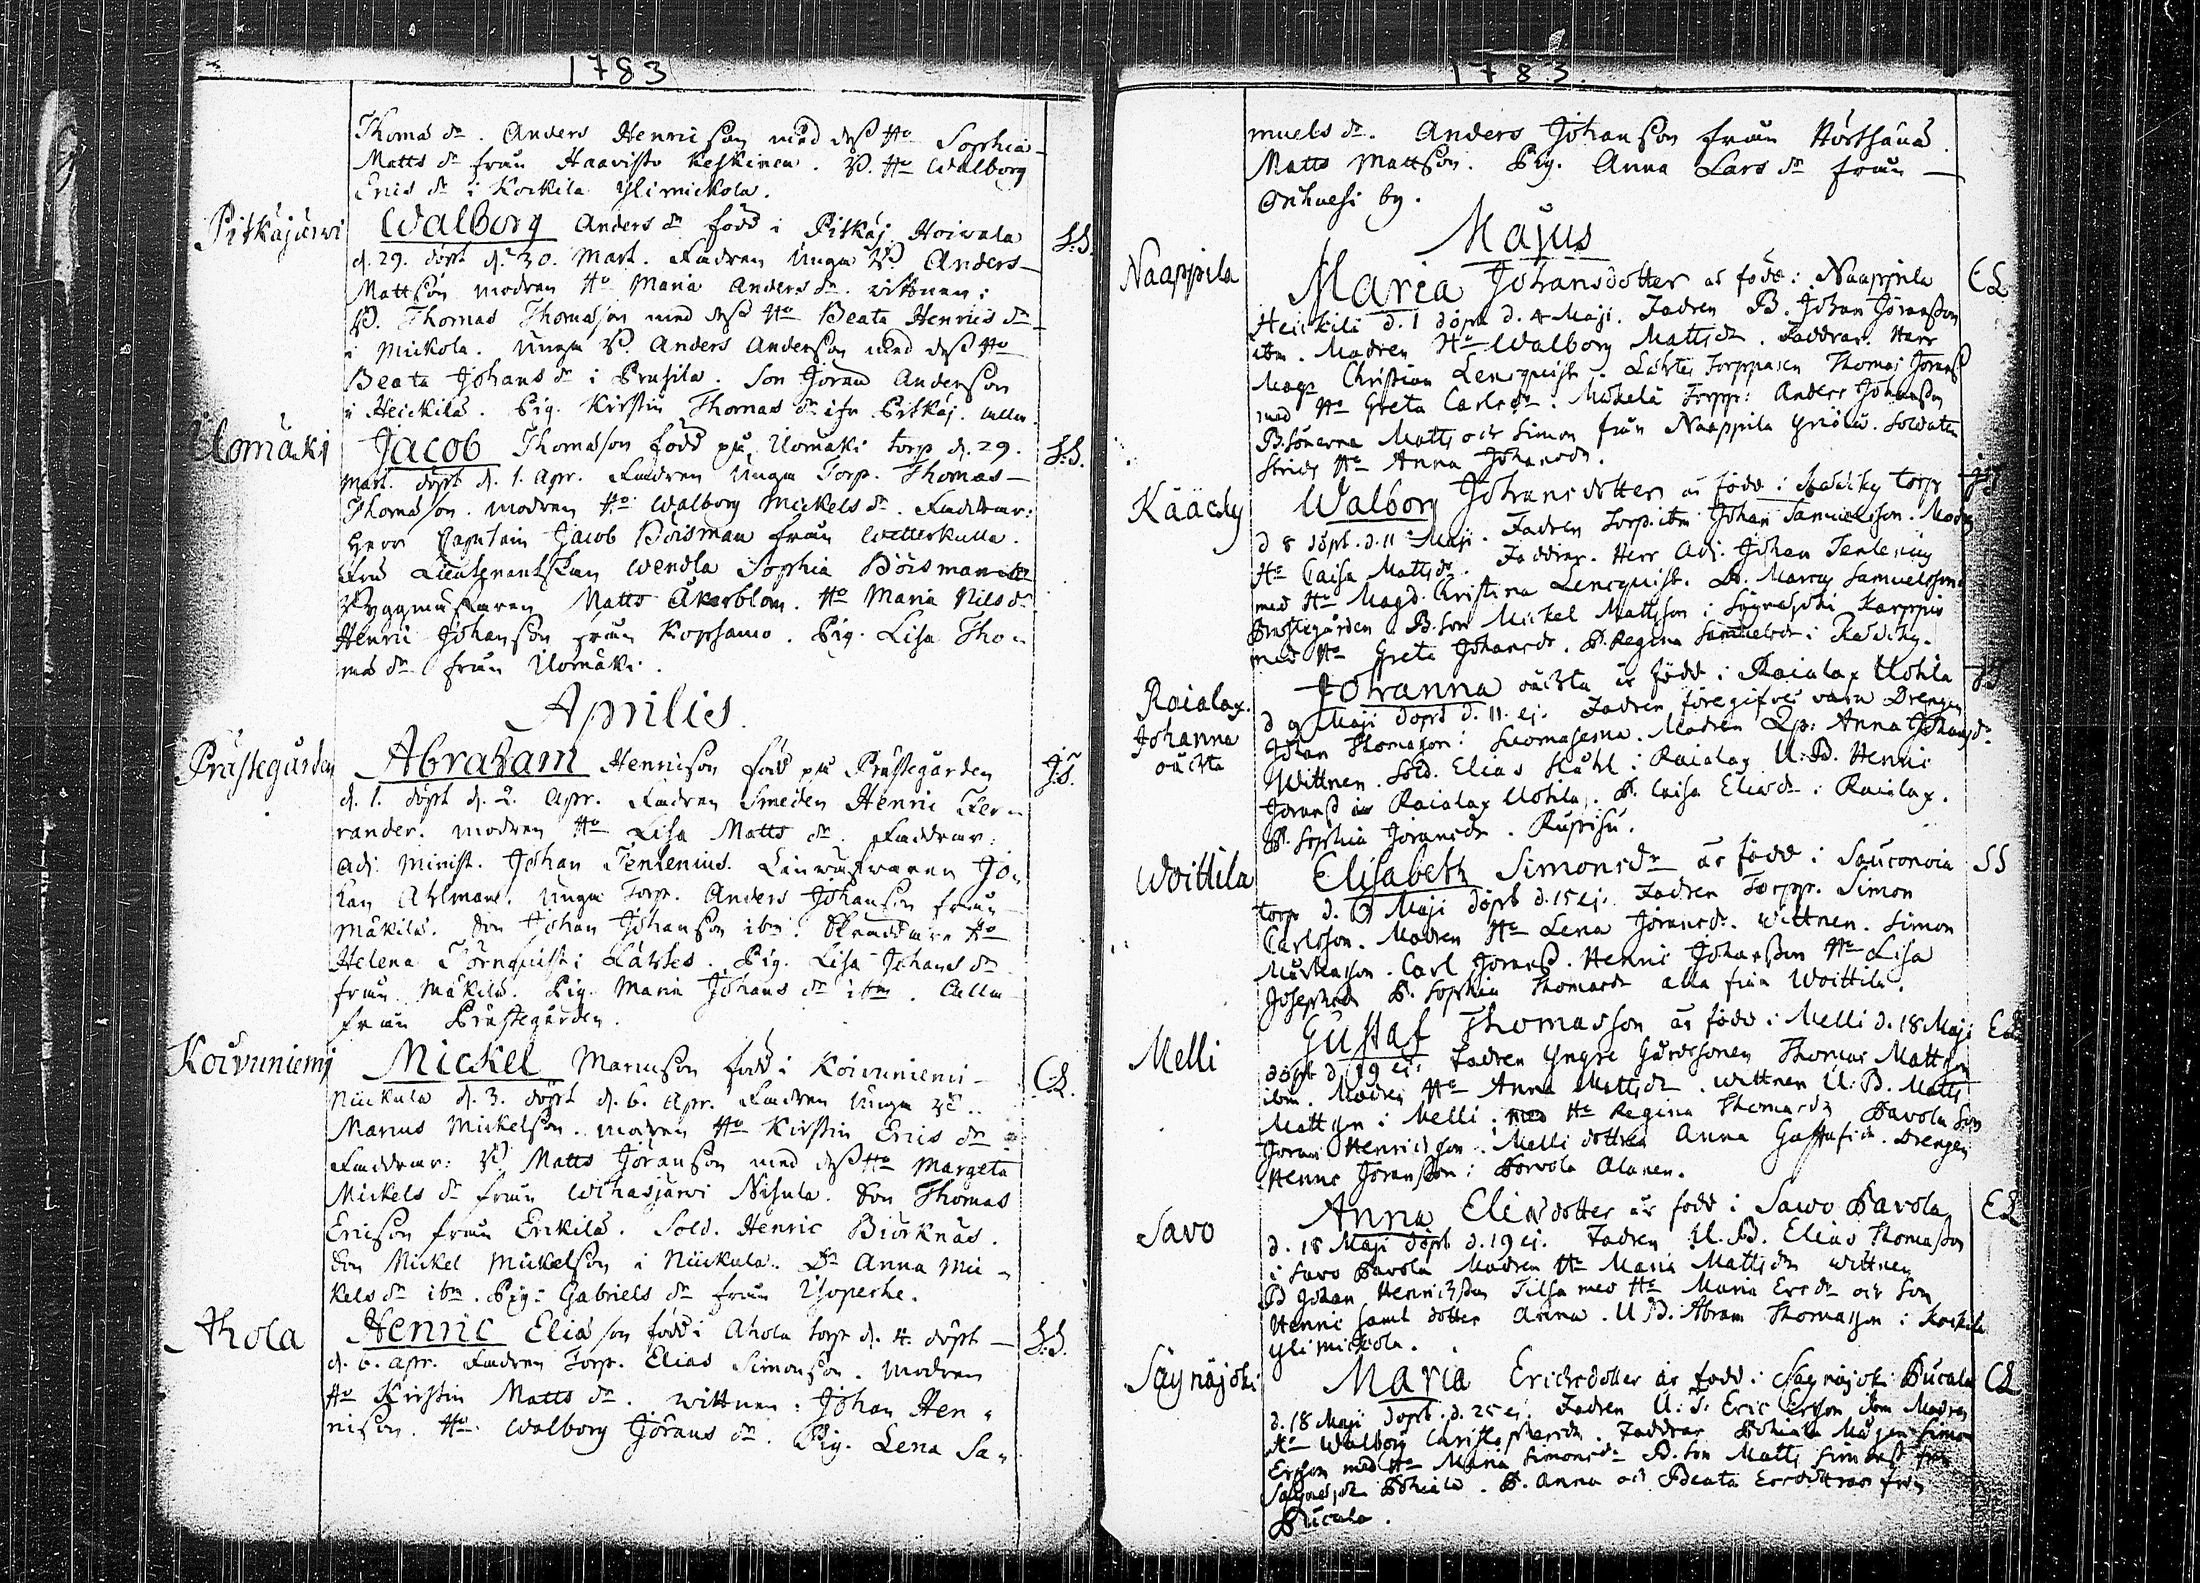 1783
Thomas dr. Anders Henricson med dess Ho Sophia
Matts dr från Haavisto Keskinen. B. Ho Walborg
Erics dr i Korkila Ylimickola.
Pitkäjärwi Walborg Anders dr född i Pitkäj. Hoivala S:S.
d. 29. döpt d. 30. Mart. Fadren Unga B. Anders
Mattson modren Ho Maria Anders dr. vittnen:
B. Thomas Thomasson med dess Ho Beata Henrics dr
i Mickola. Unga B. Anders Anderson med dess Ho
Beata Johans dr i Prusila. Son Jöran Anderson
i Heickilä. Pig. Kirstin Thomas dr ifr. Pitkäj.
Ilomäki Jacob Thomasson född på Ilomäki torp d. 29. S:S.
Mart. döpt d. 1. Apr. Fadren Unga Torp. Thomas
Thomasson. modren Ho Walborg Mickels dr. Faddrar:
Herr Captain Jacob Böisman från Wetterkulla.
Fru Lieutenantskan Wendla Sophia Böisman
Byggmästaren Matts Åkerblom. Ho Maria Nils dr
Henric Johanson från Kopsamo. Pig. Lisa Tho-
mas dr från Ilomäki.
Aprilis.
Prästegården Abraham Henricson född på Prästegården J:T.
d. 1. döpt d. 2. Apr. Fadren Smeden Henric Fer-
rander. modren Ho Lisa Matts dr. Faddrar:
Adj. Minist. Johan Tenlenius. Linwäfvaren Jo-
han Ahlman. Unga Torp. Anders Johanson från
Mäkilä. Son Johan Johanson ibm. Skräddare Ho
Helena Törnquist i Lähtes. Pig. Lisa Johans dr
från Mäkilä. Pig. Maria Johans dr ibm. Alla
från Prästegården.
Koivuniemj Mickel Mariuson född i Koivuniemi C.L.
Nickula d. 3. döpt d. 6. Apr. Fadren Unga B.
Marius Mickelson. modren Ho Kirstin Erics dr
Faddrar: B. Matts Jöranson med dess Ho Margeta
Mickels dr från Wihasjärwi Nisula. Son Thomas
Ericson från Erikilä. Sold. Henric Biörknäs.
Son Mickel Mickelson i Nickula. Dr Anna Mic-
kels dr ibm. Pig: Gabriels dr från Ysoperhe.
Ahola Henric Eliasson född i Ahola torp d. 4. döpt S.S.
d. 6. Apr. Fadren Torp. Elias Simonson. modren
Ho Kirstin Matts dr. wittnen: Johan Hen-
ricson. Ho Walborg Jörans dr. Pig. Lena Sa-
1783.
muels dr. Anders Johanson från Hörhänä.
Matts Mattson. Pig. Anna Lars dr från
Onkuesi by.
Majus
Naappila Maria Johansdotter är född i Naappila C.L
Heickili d. 1 döpt d. 4 Maji. Fadren B. Johan Jöransson
ibm. Modren Ho Walborg Mattsdr. Faddrar. Herr
Mag. Christian Lencquist. Lähtes Torpparen Thomas Jöranss.
med Ho Greta Carlsdr. Mäkelä Torpp: Anders Johansson
B.sönerna Matts och Simon från Naappila Yriölä. Soldaten
Strids Ho Anna Johansdr.
Käächy Walborg Johansdotter är född i Käächy torp JT
d 8 döpt. d. 11 Maji. Fadren Torp. ibm Johan Samuelsson. Modren
Ho Caisa Mattsdr. Faddrar. Herr Adj. Johan Tenlenius
med Ho Magd. Christina Lencquist. D. Marcus Samuelsson
Prästegården. B.son Mickel Mattsson i Säynäjoki Karppis
med Ho Greta Johansdr. P. Regina Samuelsdr i Käächy.
Raialax. Johanna oäckta är född i Raialax Uohla JT
Johanna d 9 Maji döpt d. 11. ej. Fadren föregifves vara Drengen
oäckta Johan Thomasson i Suomasema. Modren Qp: Anna Johansdr.
Wittnen. Sold. Elias Ståhl i Raialax U: B. Henric
Jöranss i Raialax Uohla. P. Caisa Eliasdr i Raialax.
P. Sophia Jöransdr. Rupisu.
Woittila Elisabeth Simonsdr är född i Sauconoia SS
torp d. 13 Maji döpt d. 15 ej. Fadren Torpp. Simon
Carlsson. Modren Ho Lena Jöransdr. Wittnen. Simon
Mårtensson. Carl Jöranss. Henric Johansson Ho Lisa
Josephsdr P. Sophia Thomasdr alla från Woittila.
Melli Gustaf Thomasson är född i Melli d. 18 Maji E.L
döpt d 19 ej. Fadren Yngre Gårdssonen Thomas Mattsson
ibm. Modren Ho Anna Mattsdr. Wittnen U: B. Matts
Mattson i Melli med Ho Regina Thomasdr Pavola Son
Joran Henricsson. Melli dottren Anna Gustafsdr. Drengen
Henric Joransson i Porvola Alanen.
Savo Anna Eliædotter är född i Sawo Pavola E.L
d. 18 Maji döpt d. 19 ej. Fadren U. B. Elias Thomasson
i Savo Pavola Modren Ho Maria Mattsdr wittnen
B Johan Henricsson Tilsa med Ho Maria Ersdr och Son
Henric samt dotter Anna. U B. Abram Thomasson i Korkila
Ylimickola.
Säynäjoki Maria Erichsdotter är född i Säynäjoki Pucala C.L
d. 18 Maji döpt. d. 25 ej. Fadren U. B. Eric Ersson ibm Modren
Ho Walborg Christophersdr. Faddrar Pohiala Mågen Simon
Ersson med Ho Maria Simonsdr B. Son Matts Simonss från
Säynäjoki Pohiala. P. Anna och Beata Ersdöttrar från
Pucala.